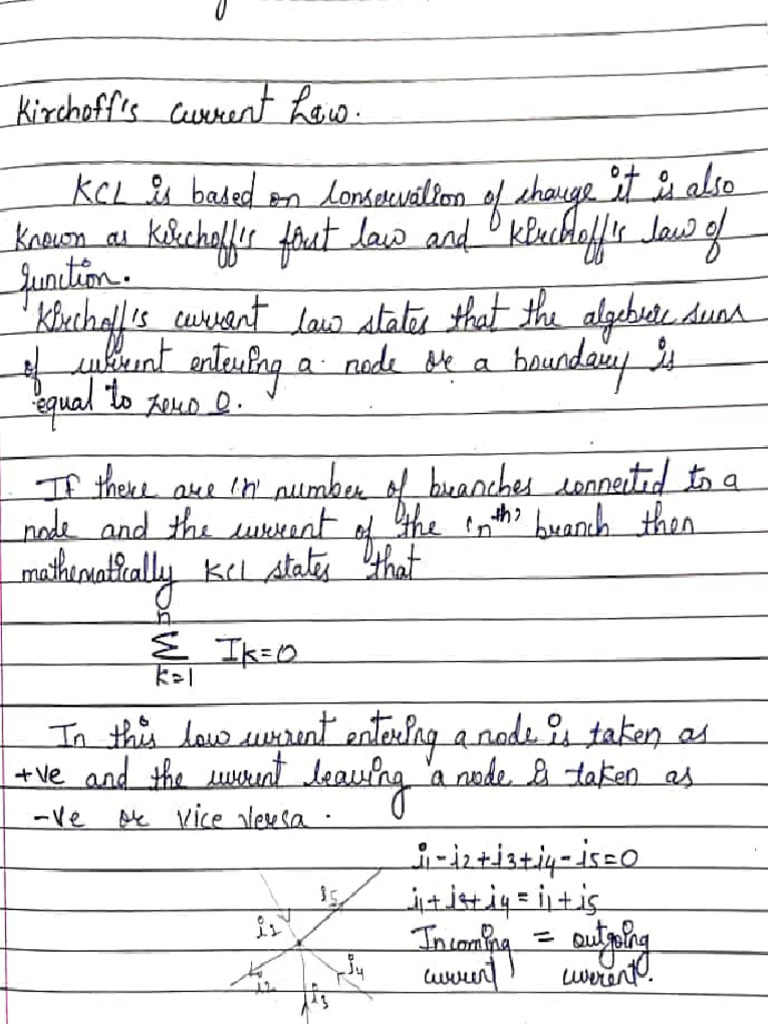 Kirchoff's current Law.
KCL is based on conservation of charge it is also
known as Kirchoff's first law and Kirchoff's law of
junction.
Kirchoff's current law states that the algebraic sum
of current entering a node or a boundary is
equal to zero 0.
If there are 'n' number of branches connected to a
node and the current of the 'nth' branch then
mathematically KCl states that
n
Σ Ik=0
k=1
In this law current entering a node is taken as
+ve and the current leaving a node is taken as
-ve or vice versa.
i1-i2+i3+i4-i5=0
i1+i3+i4 = i1+i5
Incoming = outgoing
current current.
i5
i1
i2
i4
i3